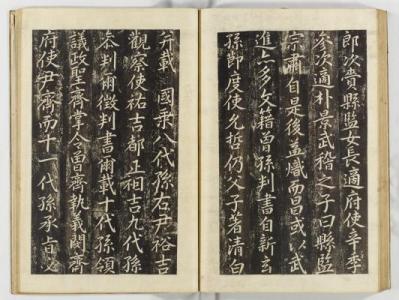 郎次賚縣監女長適府使辛季
參次適朴景武稽之子曰縣監
宗肅自是後益熾而昌或以武
進亦多文籍曾孫判書自新玄
孫節度使允哲仍父子著清白
幷載國乘八代孫右尹裕吉
觀察使祐吉都正祖吉九代孫
參判爾徵判書爾載十代孫領
議政聖齊掌令曾齊執義聞齊
府使尹齊而十一代孫承旨文